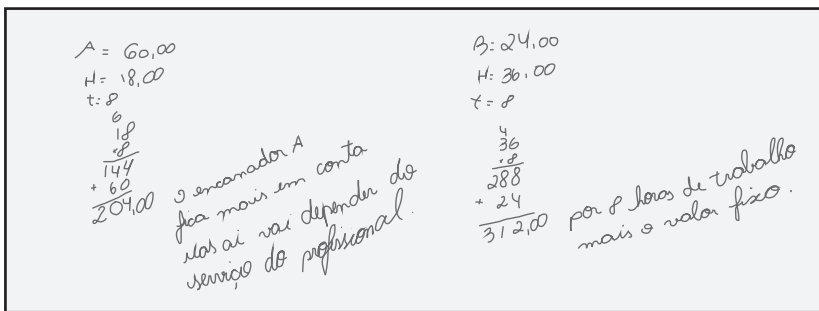 A = 60,00
H = 18,00
t = 8
6
18
.8
144
+ 60
204,00
o encanador A
fica mais em conta
Mas ai vai depender do
serviço do profissional.
B: 24,00
H: 36,00
t = 8
4
36
.8
288
+ 24
312,00
por 8 horas de trabalho
mais o valor fixo.